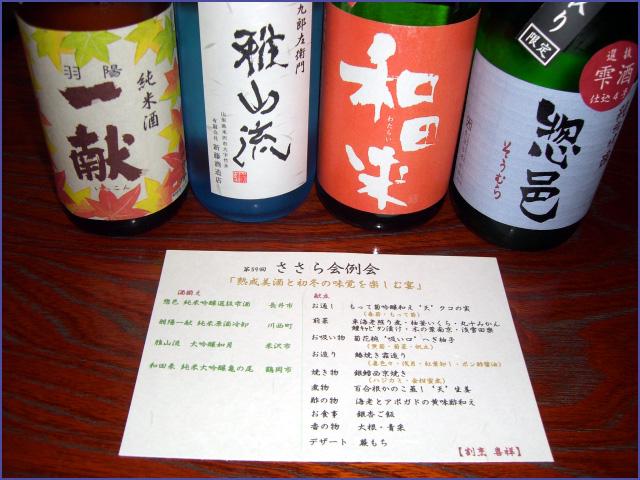 羽陽
一献
いっこん
純米酒
九郎左衛門
雅山流
有限会社 新藤酒造店
和田来
わたらい
限定
惣邑
そうむら
選抜
雫酒
第59回 ささら会例会
「熟成美酒と初冬の味覚を楽しむ宴」
酒揃え
惣邑 純米吟醸選抜雫酒 長井市
朝陽一献 純米原酒冷卸 川西町
雅山流 大吟醸如月 米沢市
和田来 純米大吟醸亀の尾 鶴岡市
献立
お通し もって菊吟醸和え "天" クコの実
(春菊・もって菊)
前菜 車海老照り煮・柚釜いくら・丸十みかん
鱧キャビタン漬け・木の葉南京・浅雪田楽
お吸い物 菊花椀 "吸い口" へぎ柚子
(黄菊・菊菜・帆立)
お造り 鰆焼き霜造り
焼き物 銀鱈西京焼き
煮物 百合根かのこ蒸し "天" 生姜
酢の物 海老とアボガドの黄味酢和え
お食事 銀杏ご飯
香の物 大根・青菜
デザート 蕨もち
【割烹 喜祥】